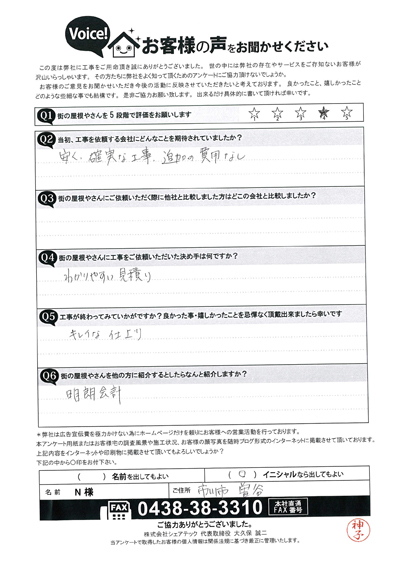 Voice! お客様の声をお聞かせください
この度は弊社に工事をご用命頂き誠にありがとうございました。世の中には弊社の存在やサービスをご存知ないお客様が
沢山いらっしゃいます。その方たちに弊社をよく知って頂くためのアンケートにご協力頂けないでしょうか。
お客様のご意見をお聞かせいただき今後の活動に反映させていきたいと考えております。良かったこと、嬉しかったこと
どのような些細な事でも結構です。是非ご協力お願い致します。出来るだけ具体的に書いて頂ければ幸いです。
Q1 街の屋根やさんを5段階で評価をお願いします ☆ ☆ ☆ ★ ☆
Q2 当初、工事を依頼する会社にどんなことを期待されていましたか?
安く、確実な工事、追加の費用なし
Q3 街の屋根やさんにご依頼いただく際に他社と比較しました方はどこの会社と比較しましたか?
Q4 街の屋根やさんに工事をご依頼いただいた決め手は何ですか?
わかりやすい見積り
Q5 工事が終わってみていかがですか?良かった事・嬉しかったことを忌憚なく頂戴出来ましたら幸いです
キレイな仕上り
Q6 街の屋根やさんを他の方に紹介するとしたらなんと紹介しますか?
明朗会計
*弊社は広告宣伝費を極力かけない為にホームページだけを頼りにお客様への営業活動を行っております。
本アンケート用紙またはお客様宅の調査風景や施工状況、お客様の顔写真を随時ブログ形式のインターネットに掲載させて頂いております。
上記内容をインターネットや印刷物に掲載させて頂いてもよろしいでしょうか?
下記の中から〇印をお付下さい。
( ) 名前を出してもよい (○) イニシャルなら出してもよい
名前 N様 ご住所 市川市 菅谷
FAX 0438-38-3310 本社直通 FAX番号
ご協力ありがとうございました。
株式会社シェアテック 代表取締役 大久保 誠二
当アンケートで取得したお客様の個人情報は関係法規に基づき厳正に管理いたします。
神子